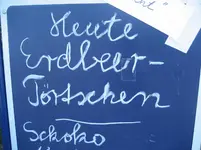 Heute
Erdbeer-
Törtschen
Schoko